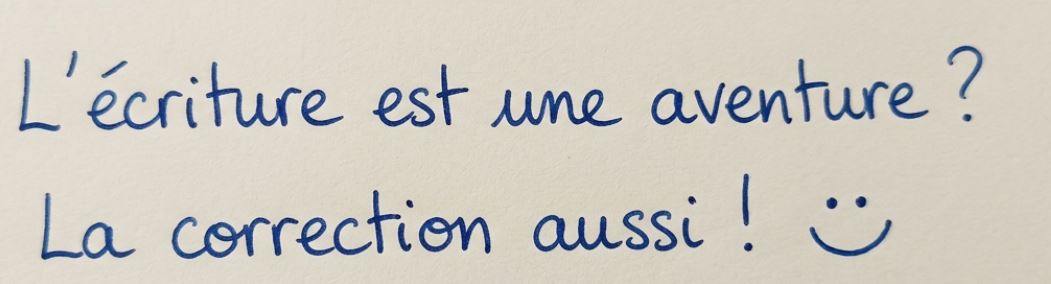 L'écriture est une aventure ?
La correction aussi ! :)